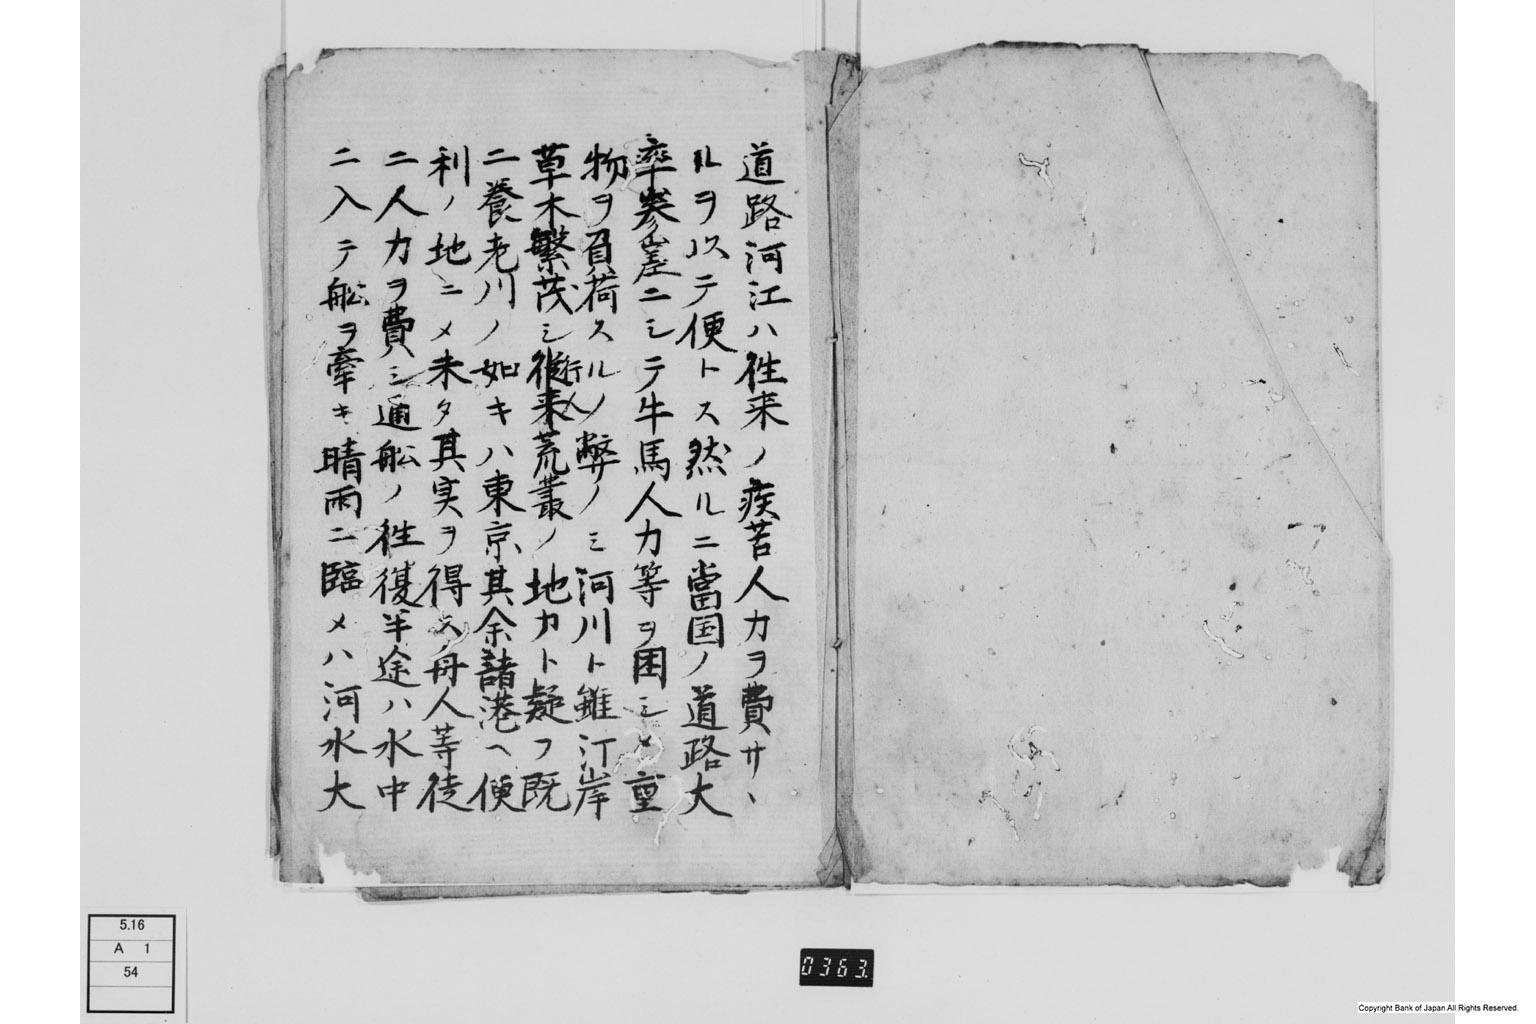 道路河江ハ徃来ノ疾苦人力ヲ費サヽ
ルヲ以テ便トス然ルニ當国ノ道路大
率嵾嵯ニシテ牛馬人力等ヲ困シメ重
物ヲ負荷スル行人ノ弊ノミ河川ト雖汀岸
草木繁茂シ従来荒叢ノ地カト疑フ既
ニ養老川ノ如キハ東京其余諸港ヘ便
利ノ地ニメ未タ其実ヲ得ス舟人等徒
ニ人力ヲ費シ通舩ノ徃復半途ハ水中
ニ入テ舩ヲ牽キ晴雨ニ臨メハ河水大
5.16
A 1
54
0363.
Copyright Bank of Japan All Rights Reserved.